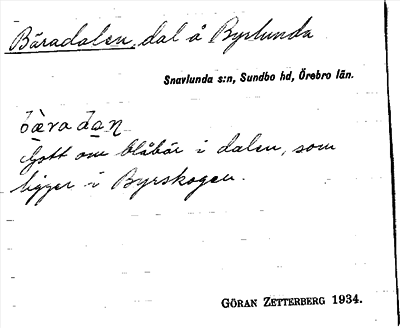 Bäradalen, dal å Byrlunda
Snavlunda s:n, Sundbo hd, Örebro län.
Gott om blåbär i dalen, som
ligger i Byrskogen.
GÖRAN ZETTERBERG 1934.